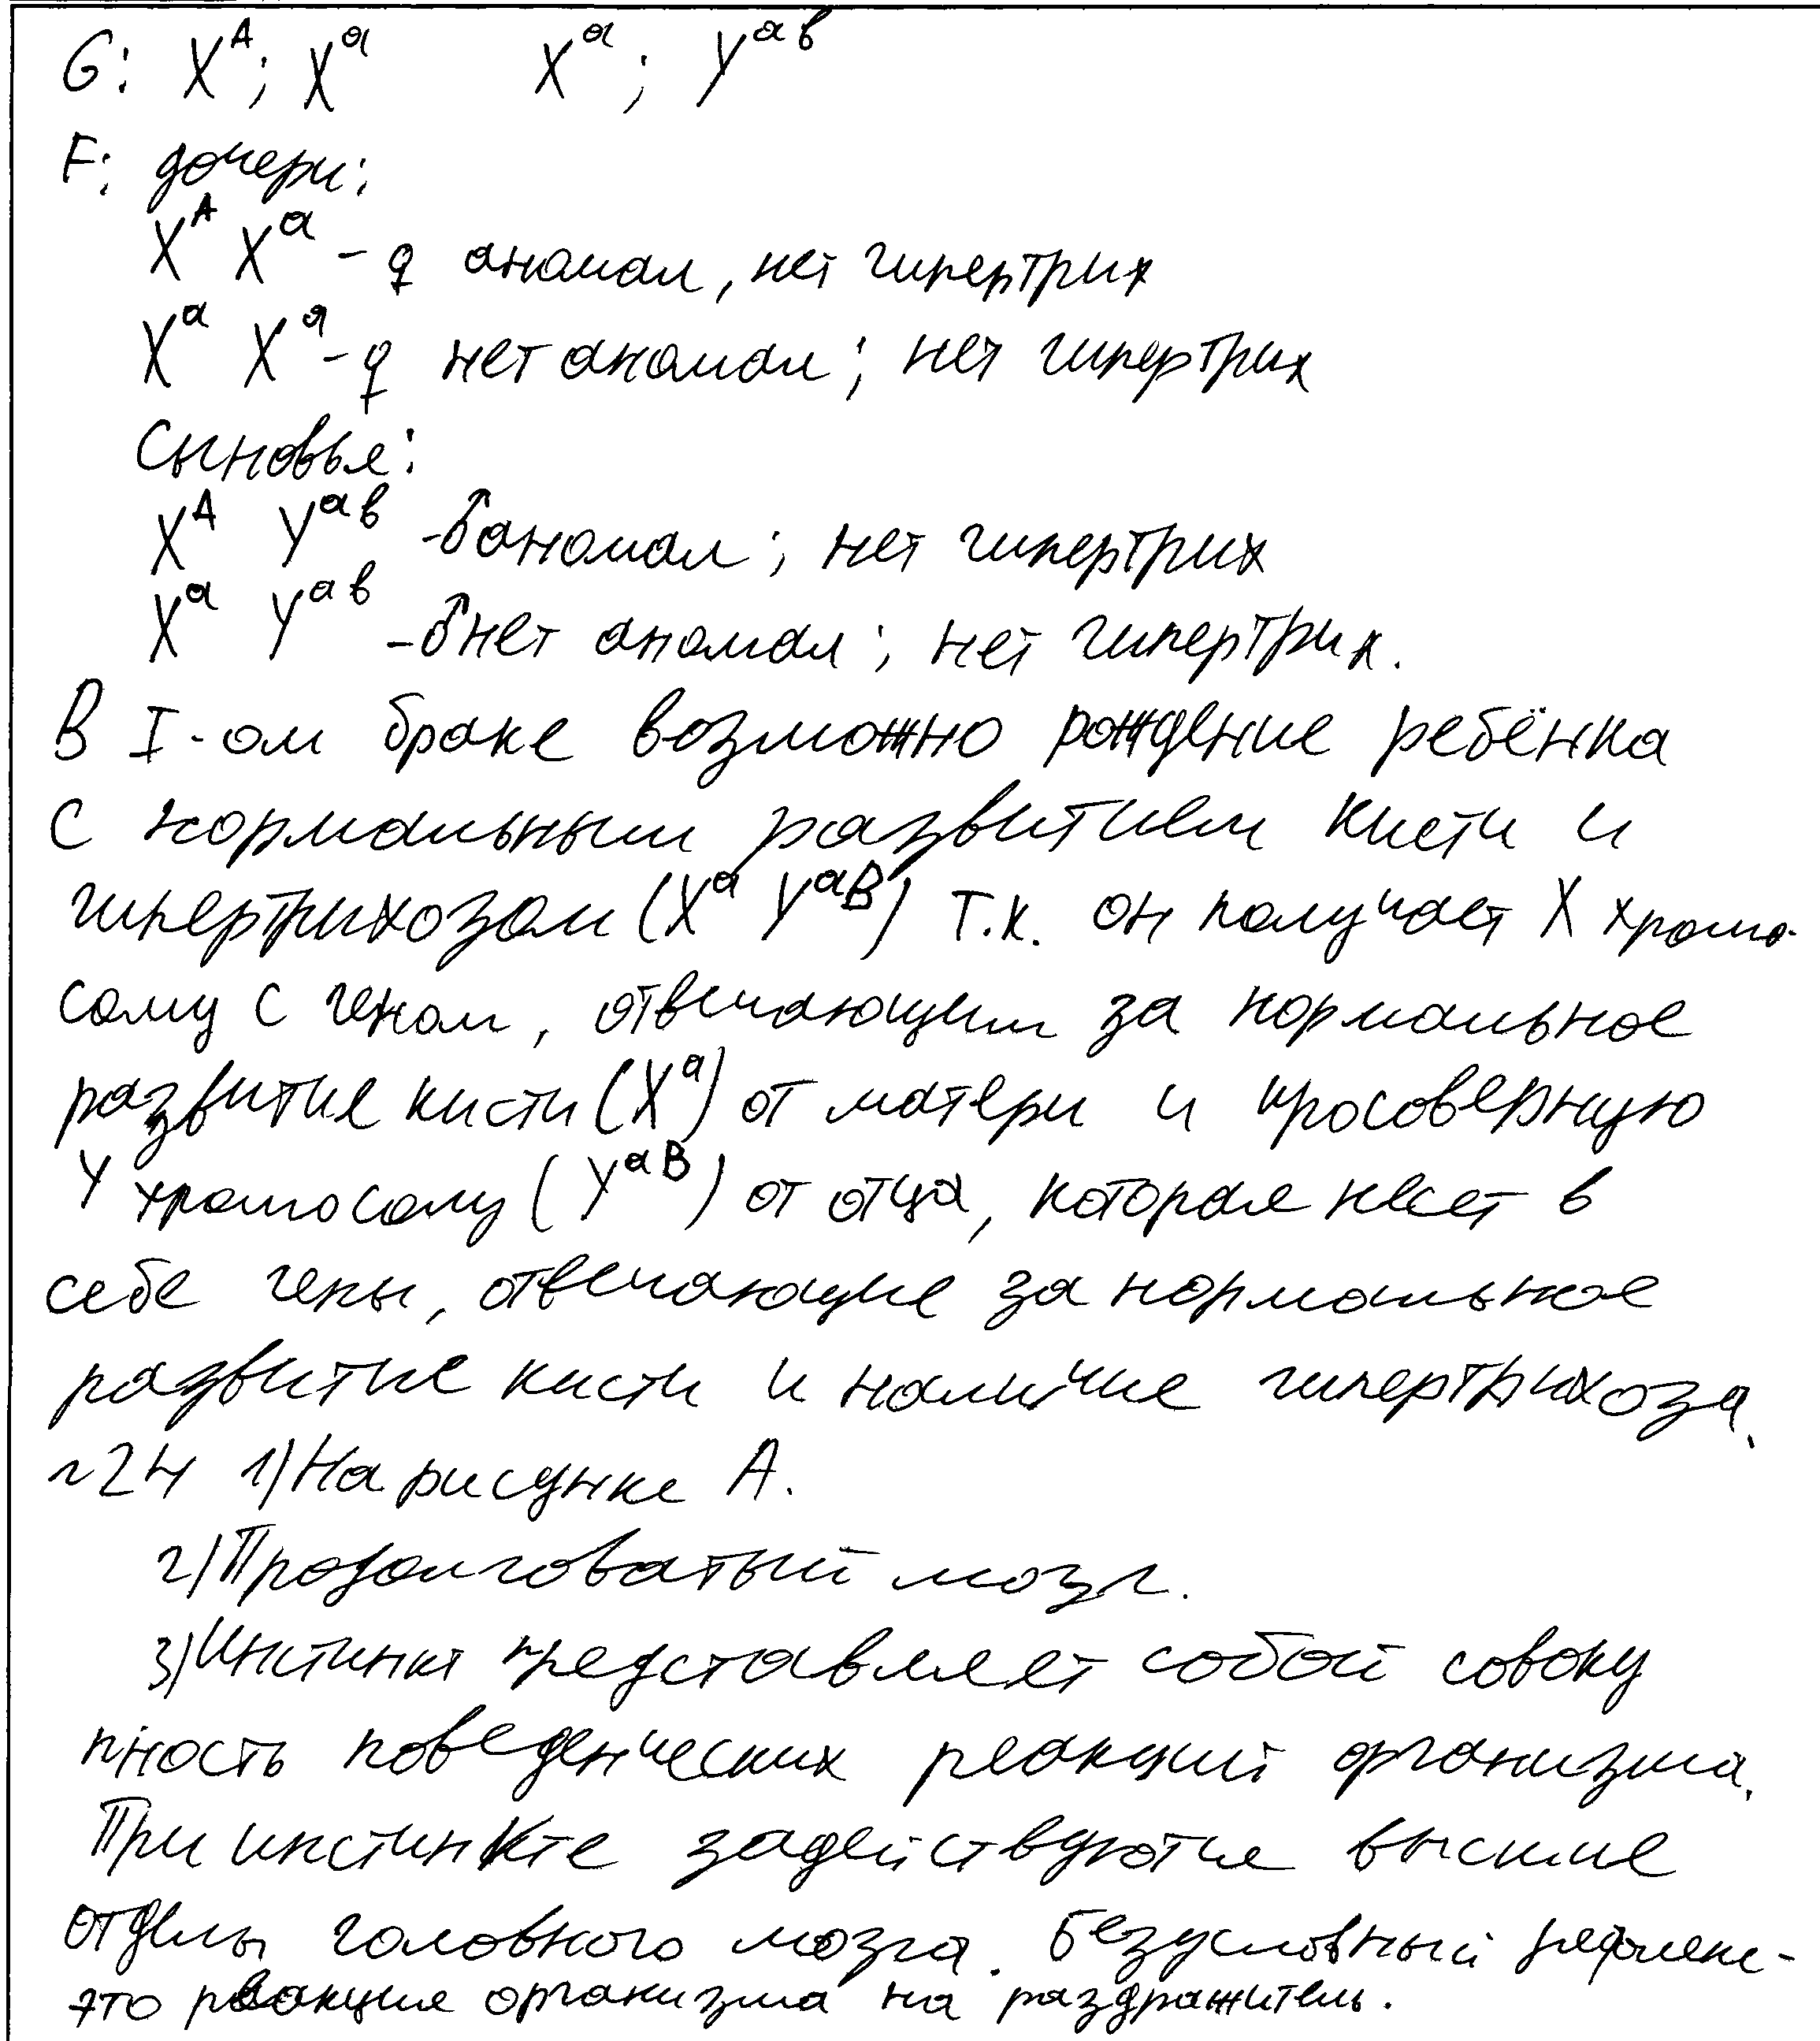 G: X^A; X^a X^a; Y^ав
F: дочери:
X^A X^a - ♀ аномал, нет гипертрих
X^a X^a - ♀ нет аномал; нет гипертрих
Сыновья:
X^A Y^ав - ♂ аномал; нет гипертрих
X^a Y^ав - ♂ нет аномал; нет гипертрих.
В I-ом браке возможно рождение ребёнка
с нормальным развитием кисти и
гипертрихозом (X^a Y^aB) т.к. он получает X хромо-
сому с геном, отвечающим за нормальное
развитие кисти (X^a) от матери и кросоверную
Y хромосому (Y^aB) от отца, которая несет в
себе гены, отвечающие за нормальное
развитие кисти и наличие гипертрихоза.
~24 1) На рисунке А.
2) Продолговатый мозг.
3) Инстинкт представляет собой совоку
пность поведенческих реакций организма.
При инстинкте задействуются высшие
отделы головного мозга. Безусловный рефлекс-
это реакция организма на раздражитель.